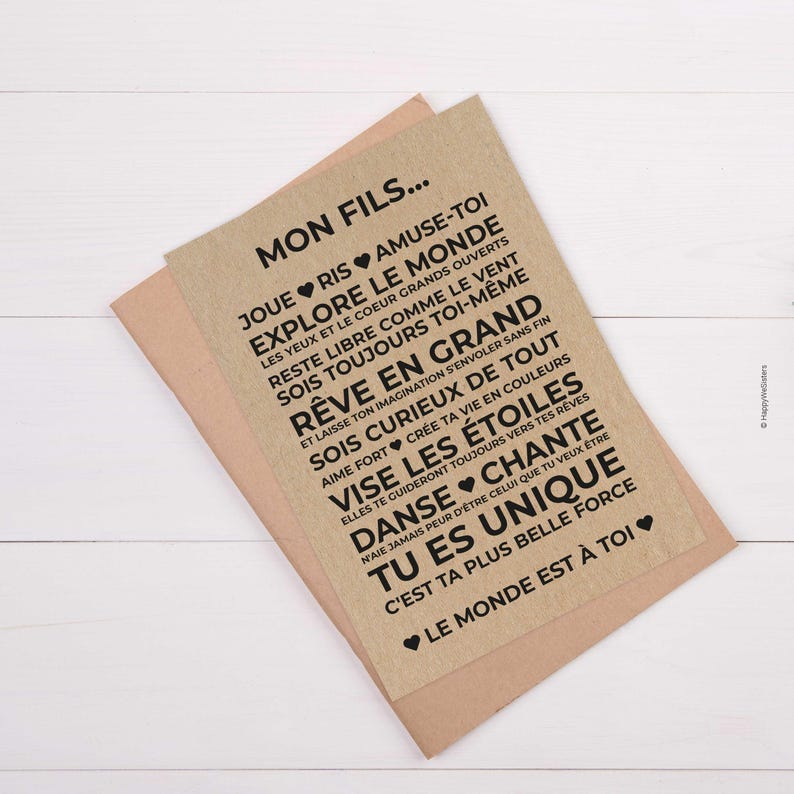 MON FILS...
JOUE ♥ RIS ♥ AMUSE-TOI
EXPLORE LE MONDE
LES YEUX ET LE COEUR GRANDS OUVERTS
RESTE LIBRE COMME LE VENT
SOIS TOUJOURS TOI-MÊME
RÊVE EN GRAND
ET LAISSE TON IMAGINATION S'ENVOLER SANS FIN
SOIS CURIEUX DE TOUT
AIME FORT ♥ CRÉE TA VIE EN COULEURS
VISE LES ÉTOILES
ELLES TE GUIDERONT TOUJOURS VERS TES RÊVES
DANSE ♥ CHANTE
N'AIE JAMAIS PEUR D'ÊTRE CELUI QUE TU VEUX ÊTRE
TU ES UNIQUE
C'EST TA PLUS BELLE FORCE
♥ LE MONDE EST À TOI ♥
© HappyWeSisters